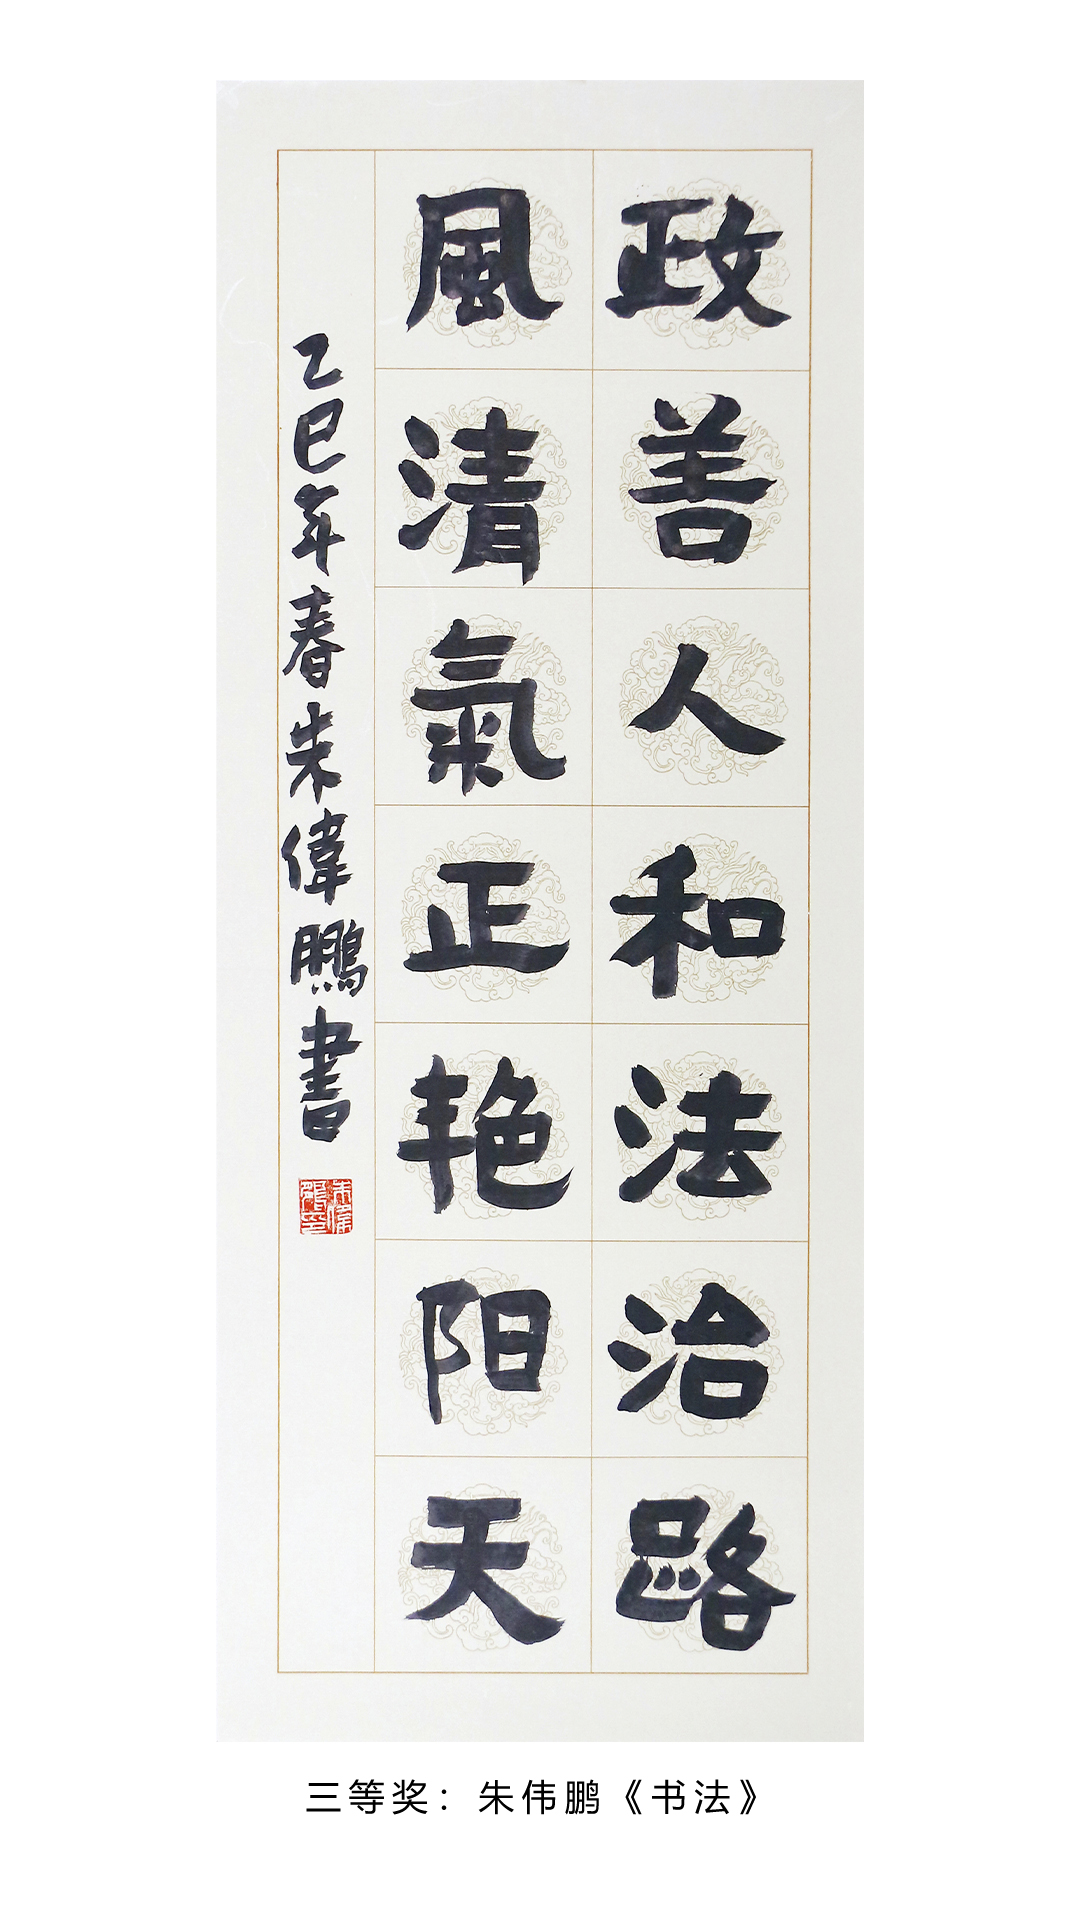 政善人和法治路
風清氣正艳阳天
乙巳年春朱偉鵬書
朱偉鵬印
三等奖：朱伟鹏《书法》